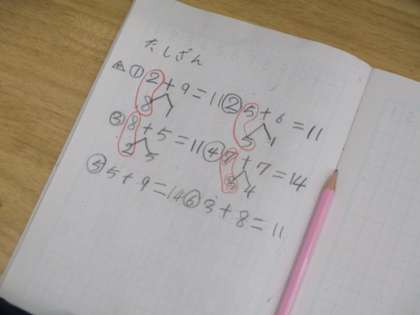 たしざん
①2+9=11 ②5+6=11
8 1 5 1
③8+5=11 ④7+7=14
2 5 3 4
⑤5+9=14 ⑥3+8=11